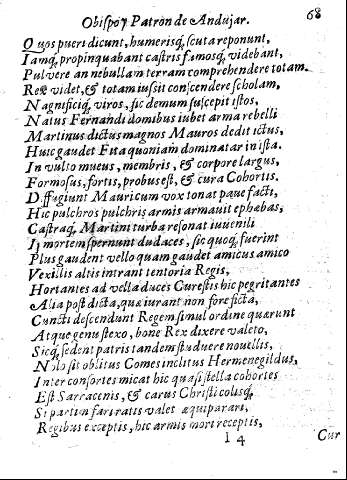 Obispo y Patron de Andujar. 68
Quos pueri dicunt, humerisq; scuta reponunt,
Iamq; propinquabant castris famosq; videbant,
Pulvere an nebullam terram comprehendere totam.
Rex videt, & totam iussit conscendere scholam,
Magnificiq; viros, sic demum suscepit istos,
Natus Fernandi domibus iubet arma rebelli
Martinus dictus magnos Mauros dedit ictus,
Huic gaudet Fita quoniam dominatar in ista.
In vulto mueus, membris, & corpore largus,
Formosus, fortis, probus est, & cura Cohortis.
Diffugiunt Mauricum vox tonat paue facti,
Hic pulchros pulchris armis armauit ephæbas,
Castraq; Martini turba resonat iuuenili
Ij mortem spernunt dudaces, sic quoq; fuerint
Plus gaudent vello quam gaudet amicus amico
Vexillis altis intrant tentoria Regis,
Hortantes ad vella duces Curestis hic pegritantes
Alia post dicta, quæ iurant non fore ficta,
Cuncti descendunt Regem simul ordine quærunt
Atque genu flexo, bone Rex dixere valeto,
Sicq; sedent patris tandem studuere nouellis,
Nolo sit oblitus Comes inclitus Hermenegildus,
Inter consortes micat hic quasi stella cohortes
Est Sarracenis, & carus Christicolisq;
Si partim fari ratis valet æquiparari,
Regibus exceptis, hic armis mori receptis,
I 4 Cur